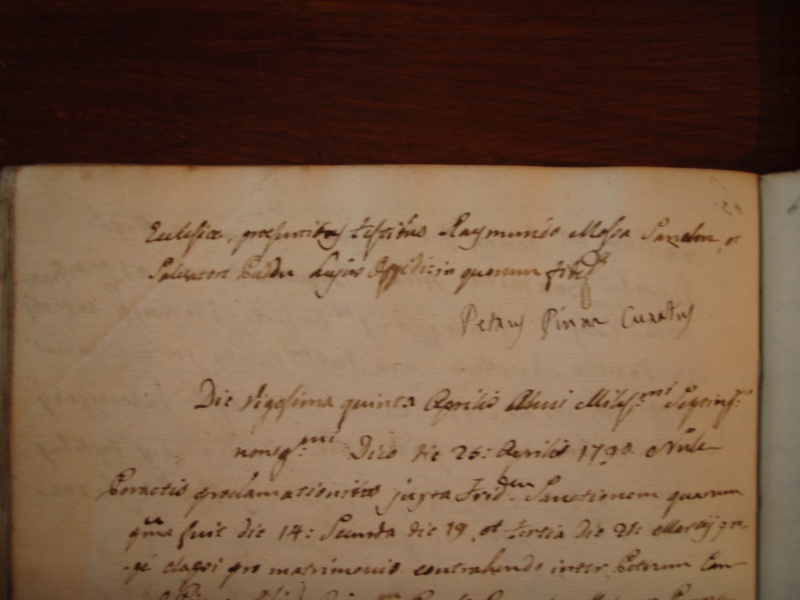 Ecclesiæ, præsentibus testibus Raymundo Massa et
Salvatore Paddu hujus Oppidi: in quorum fidem
Petrus Pinna Curatus
Die Vigesima quinta Aprilis Anni Miles.mi Septing.mi
nonag.mi Dico die 25: Aprilis 1790
Peractis proclamationibus juxta Trid.am Sanctionem quarum
p.ma fuit die 14: Secunda die 19, et tertia die 21: Martij pro-
-xé elapsi pro matrimonio contrahendo inter Petrum